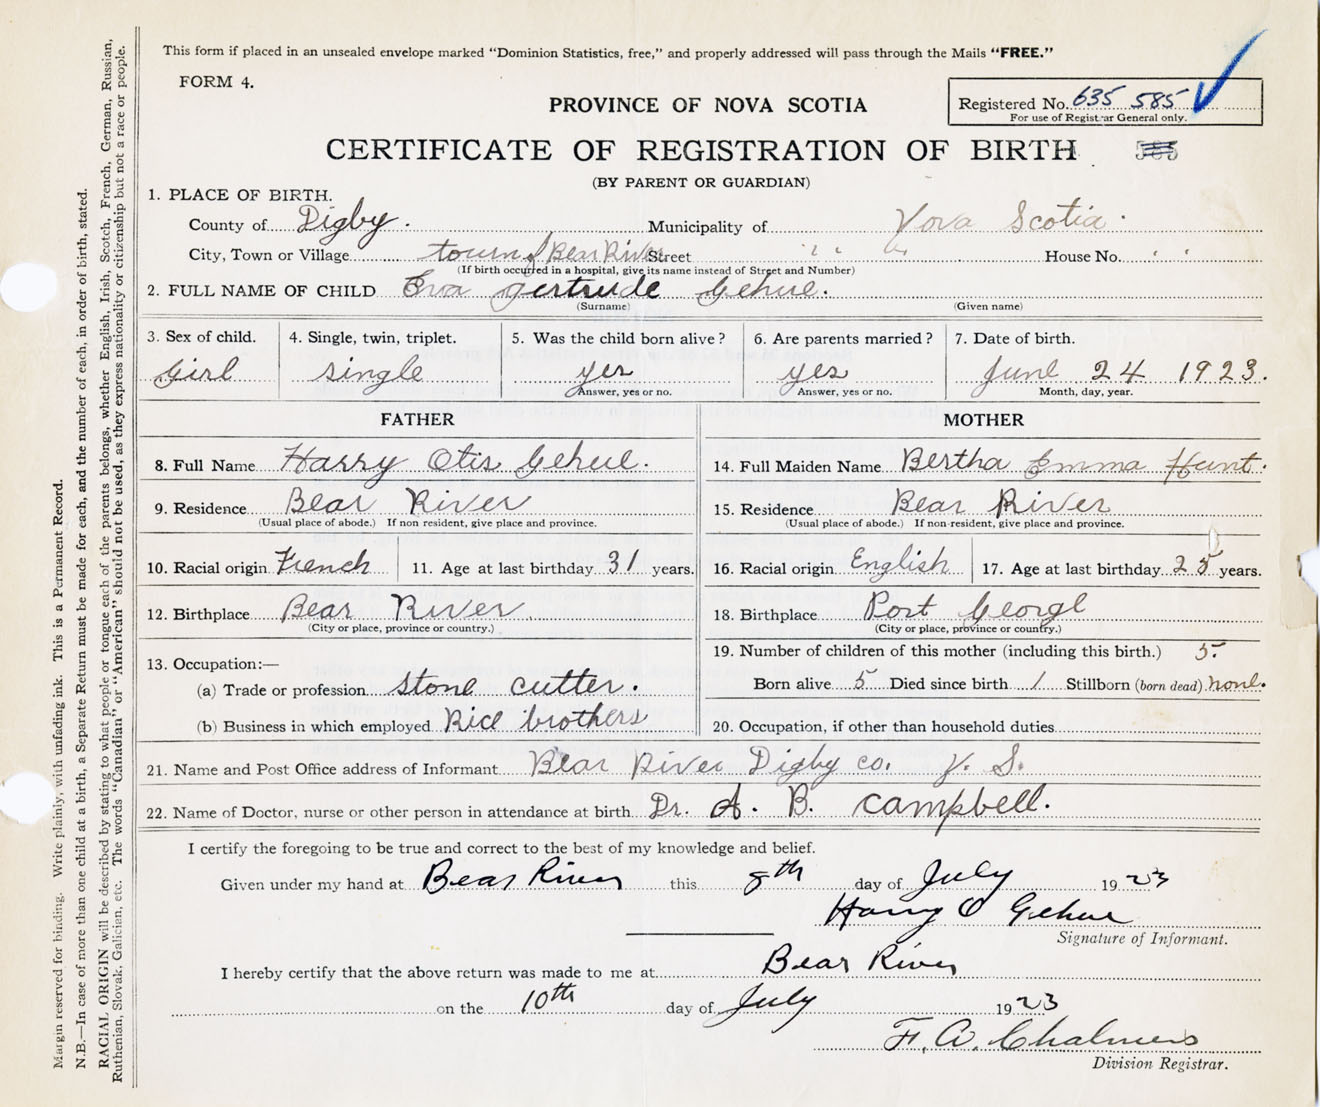 This form if placed in an unsealed envelope marked "Dominion Statistics, free," and properly addressed will pass through the Mails "FREE."
FORM 4.
PROVINCE OF NOVA SCOTIA
Registered No. 635 585
For use of Registrar General only.
CERTIFICATE OF REGISTRATION OF BIRTH 585
(BY PARENT OR GUARDIAN)
1. PLACE OF BIRTH.
County of Digby. Municipality of Nova Scotia
City, Town or Village town of Bear River Street " " " House No. " "
(If birth occurred in a hospital, give its name instead of Street and Number)
2. FULL NAME OF CHILD Eva gertrude Gehue.
(Surname) (Given name)
3. Sex of child. 4. Single, twin, triplet. 5. Was the child born alive? 6. Are parents married? 7. Date of birth.
Girl single yes yes June 24 1923.
Answer, yes or no. Answer, yes or no. Month, day, year.
FATHER MOTHER
8. Full Name Harry Otis Gehue. 14. Full Maiden Name Bertha Emma Hunt.
9. Residence Bear River 15. Residence Bear River
(Usual place of abode.) If non resident, give place and province. (Usual place of abode.) If non-resident, give place and province.
10. Racial origin French 11. Age at last birthday 31 years. 16. Racial origin English 17. Age at last birthday 25 years.
12. Birthplace Bear River 18. Birthplace Port George
(City or place, province or country.) (City or place, province or country.)
13. Occupation:— 19. Number of children of this mother (including this birth.) 5.
(a) Trade or profession stone cutter. Born alive 5 Died since birth 1 Stillborn (born dead) none.
(b) Business in which employed Rice brothers 20. Occupation, if other than household duties
21. Name and Post Office address of Informant Bear River Digby co. N. S.
22. Name of Doctor, nurse or other person in attendance at birth Dr. A. B. campbell.
I certify the foregoing to be true and correct to the best of my knowledge and belief.
Given under my hand at Bear River this 8th day of July 1923
Harry O Gehue
Signature of Informant.
I hereby certify that the above return was made to me at Bear River
on the 10th day of July 1923
F. W. Chalmers
Division Registrar.
Margin reserved for binding. Write plainly, with unfading ink. This is a Permanent Record.
N.B.—In case of more than one child at a birth, a Separate Return must be made for each, and the number of each, in order of birth, stated.
RACIAL ORIGIN will be described by stating to what people or tongue each of the parents belongs, whether English, Irish, Scotch, French, German, Russian,
Ruthenian, Slovak, Galician, etc. The words "Canadian" or "American" should not be used, as they express nationality or citizenship but not a race or people.